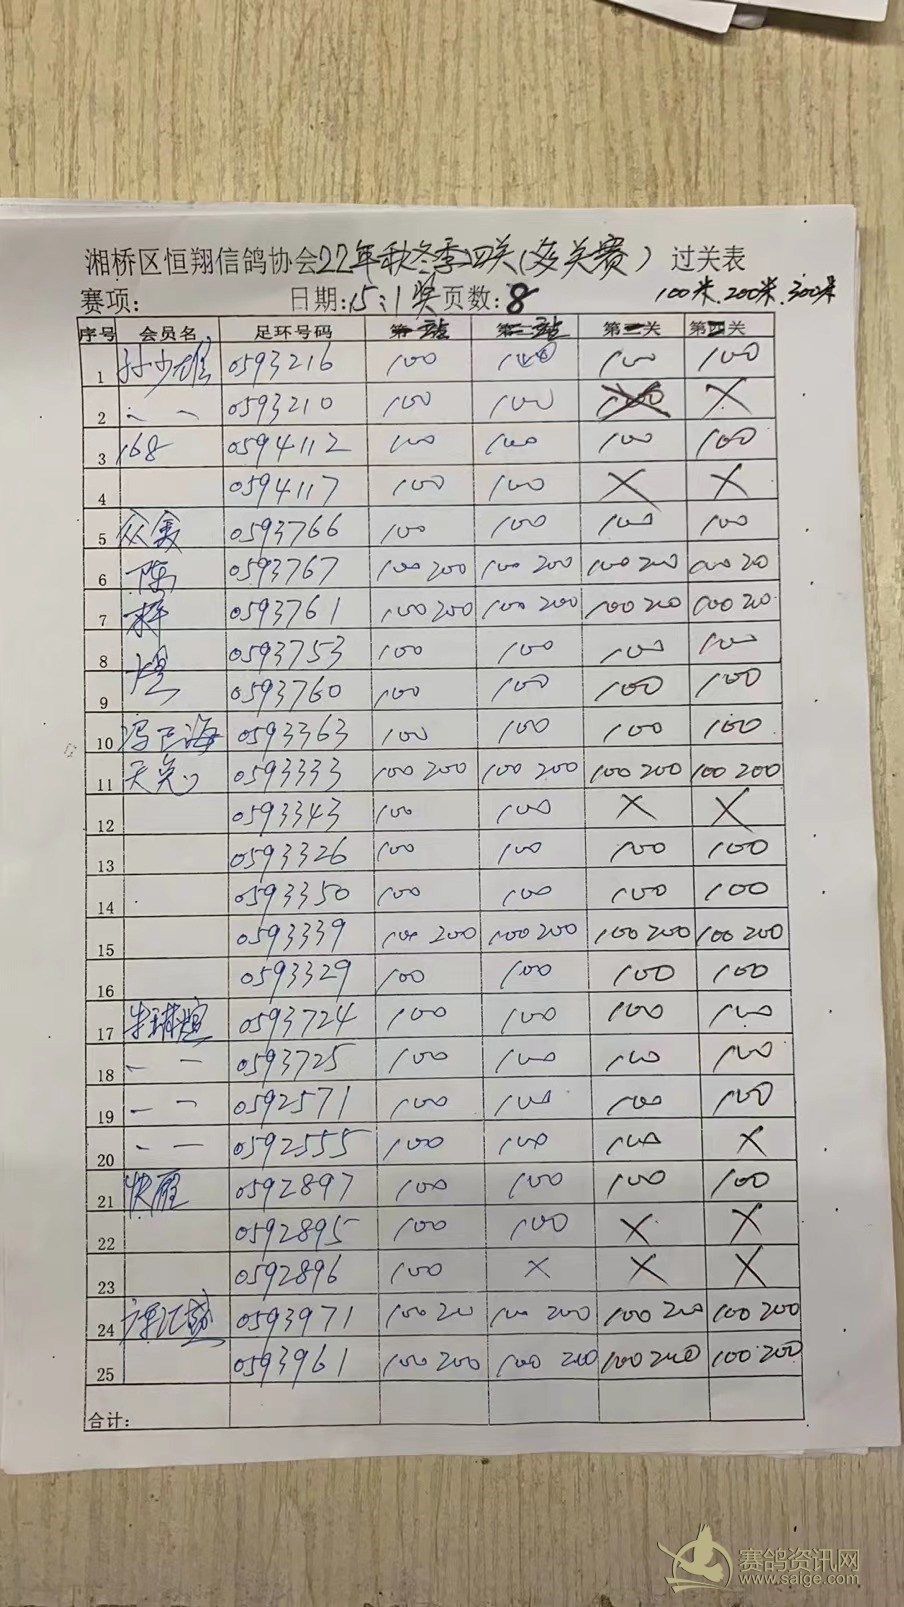 湘桥区恒翔信鸽协会22年秋冬季四关(多关赛) 过关表
赛项: 日期:15:1奖 页数:8 100米.200米.300米
序号 会员名 足环号码 第一站 第二站 第三关 第四关
1 孙少雄 0593216 100 100 100 100
2 〃 一 0593210 100 100 100 X
3 168 0594112 100 100 100 100
4 0594117 100 100 X X
5 0593766 100 100 100 100
6 陈 0593767 100 200 100 200 100 200 100 20
7 梓 0593761 100 200 100 200 100 200 100 20
8 0593753 100 100 100 100
9 0593760 100 100 100 100
10 0593363 100 100 100 100
11 0593333 100 200 100 200 100 200 100 200
12 0593343 100 100 X X
13 0593326 100 100 100 100
14 0593350 100 100 100 100
15 0593339 100 200 100 200 100 200 100 200
16 0593329 100 100 100 100
17 0593724 100 100 100 100
18 一 一 0593725 100 100 100 100
19 一 一 0592571 100 100 100 100
20 一 一 0592555 100 100 100 X
21 快雁 0592897 100 100 100 100
22 0592895 100 100 X X
23 0592896 100 X X X
24 0593971 100 200 100 200 100 200 100 200
25 0593961 100 200 100 200 100 200 100 200
合计:
赛鸽资讯网
www.saige.com